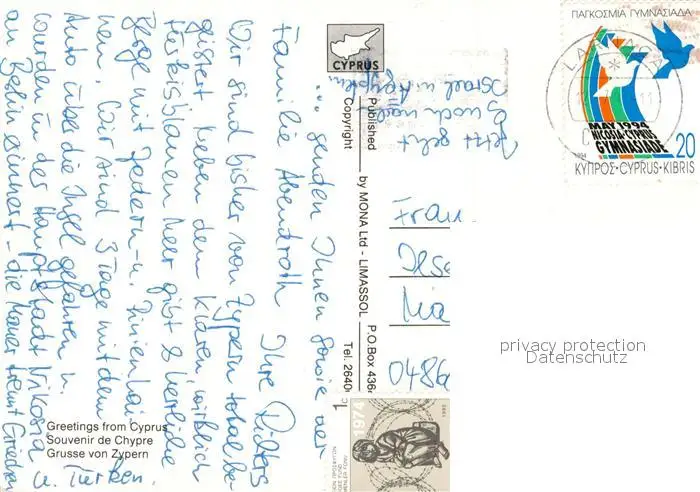 Jetzt geht
es noch nach
Israel u. Ägypten.
... senden Ihnen sowie der
Familie Abendroth Ihre Ritters
Wir sind bisher von Zypern total be-
geistert. Neben dem klaren, wirklich
türkisblauen Meer gibt es herrliche
Berge mit Zedern- u. Pinienhai-
nen. Wir sind 3 Tage mit dem
Auto über die Insel gefahren u.
wurden in der Hauptstadt Nikosia
an Berlin erinnert - die Mauer trennt Griechen
u. Türken.
Frau
Ilse
0486
CYPRUS
Published by MONA Ltd - LIMASSOL P.O.Box 436
Copyright Tel. 2640
Greetings from Cyprus
Souvenir de Chypre
Grusse von Zypern
ΠΑΓΚΟΣΜΙΑ ΓΥΜΝΑΣΙΑΔΑ
MAY 1994
NICOSIA·CYPRUS
GYMNASIADE
20
1994
ΚΥΠΡΟΣ·CYPRUS·KIBRIS
1974
privacy protection
Datenschutz